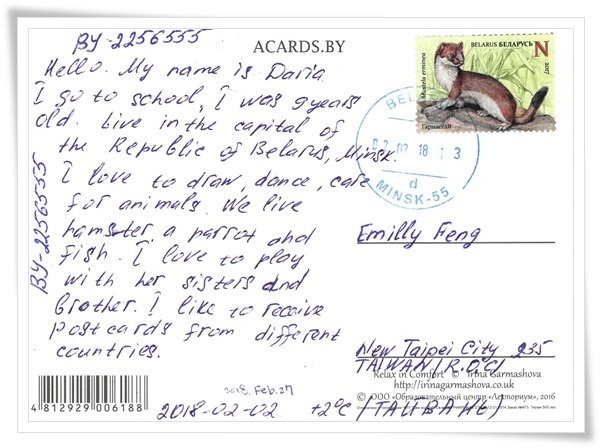 BY-2256555
ACARDS.BY
Hello. My name is Daria
I go to school, I was 9 years
old. Live in the capital of
the Republic of Belarus, Minsk.
I love to draw, dance, care
for animals. We live
hamster a parrot and
fish. I love to play
with her sisters and
brother. I like to receive
postcards from different
countries.
BY-2256555
BELARUS БЕЛАРУСЬ N
Mustela erminea
Гарнастай
2017
02 02 18 13
d
MINSK-55
Emilly Feng
New Taipei City 235
TAIWAN (R.O.C)
(ТАЙВАНЬ)
Relax in Comfort © Irina Garmashova
http://irinagarmashova.co.uk
© ООО "Образовательный центр «Лекториум», 2016
4 812929 006188
2018. Feb. 27
2018-02-02 +2°C